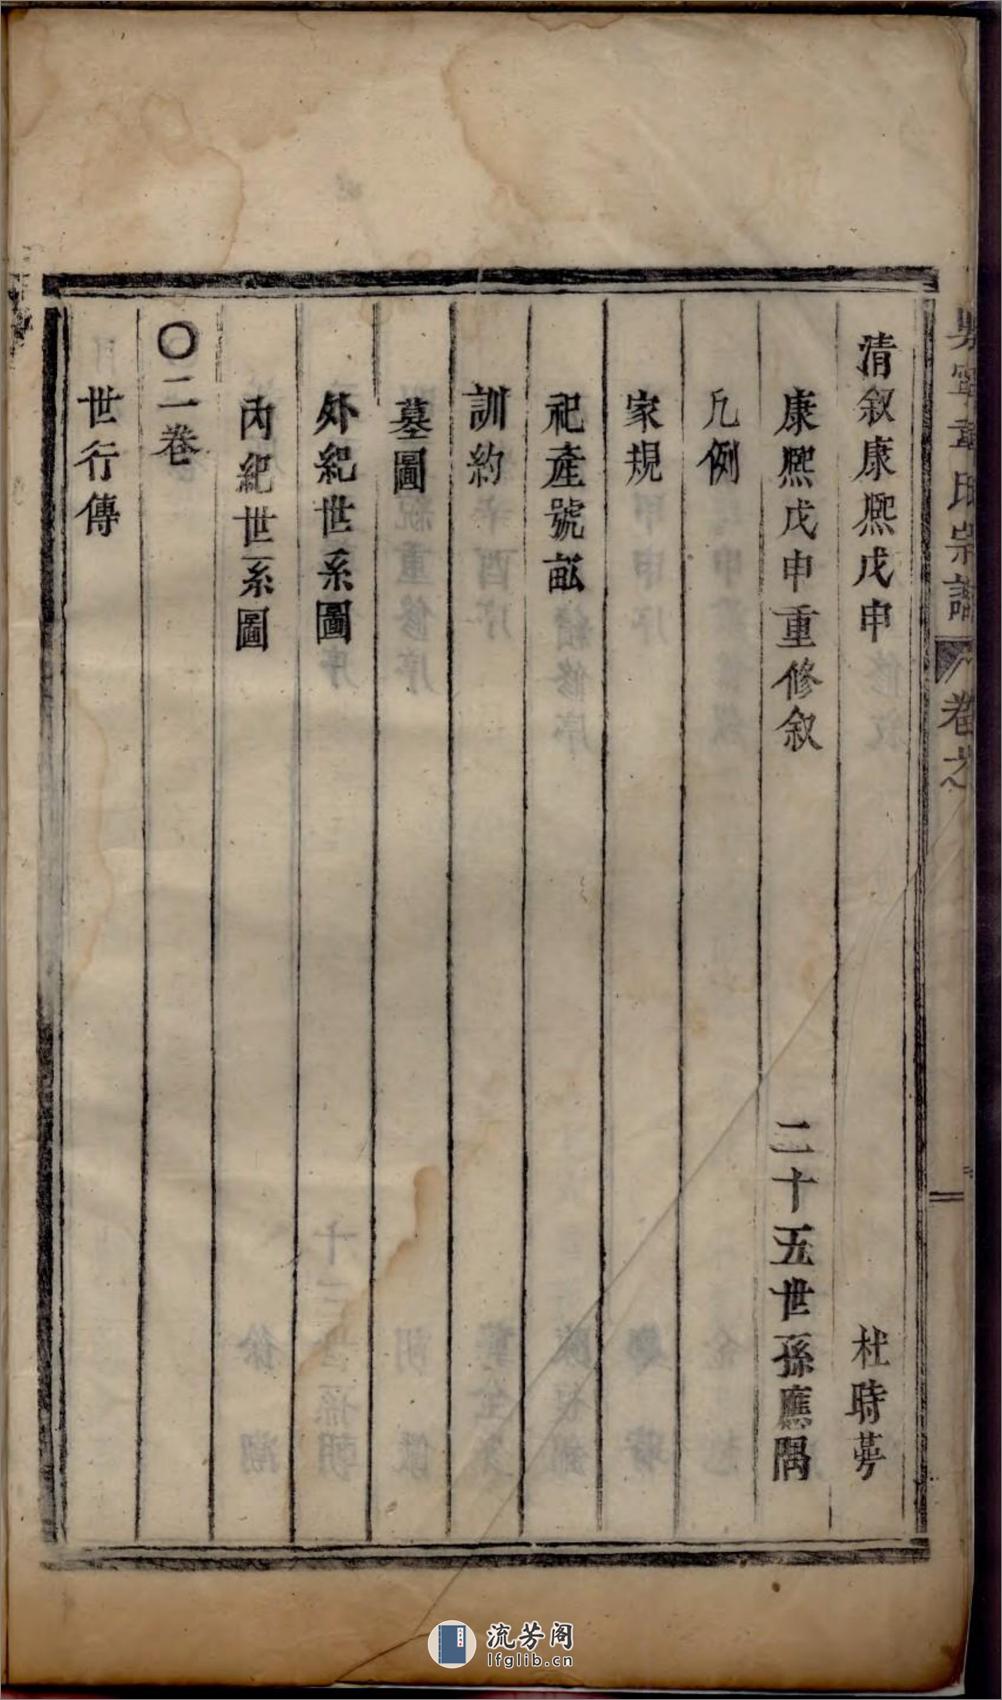 清叙康熙戊申 杜時芳
康熙戊申重修叙 二十五世孫應隅
凡例
家規
祀產號畝
訓約
墓圖
外紀世系圖
內紀世系圖
〇二卷
世行傳
氏宗譜 卷之
流芳阁
lfglib.cn